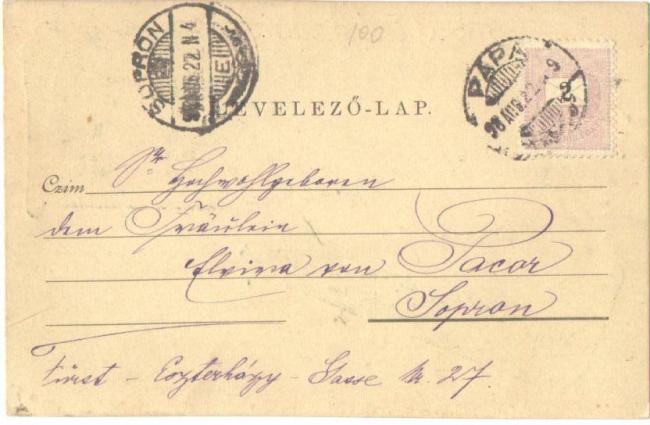 100
SOPRON
98 AUG. 22. N 4
PÁPA
98 AUG. 22. N 9
2
LEVELEZŐ-LAP.
Czim Sr Hochwohlgeboren
dem Fräulein
Elvira von Pacor
Sopron
Fürst - Eszterházy - Gasse Nr. 27